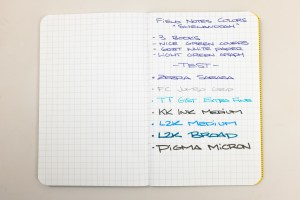 FIELD NOTES COLORS
"SHENANDOAH"
- 3 BOOKS
- NICE GREEN COVERS
- 60#T WHITE PAPER
- LIGHT GREEN GRAPH
- TEST -
• ZEBRA SARASA
• FC JUMBO
• TT GST EXTRA FINE
• KK INK MEDIUM
• L2K MEDIUM
• L2K BROAD
• PIGMA MICRON